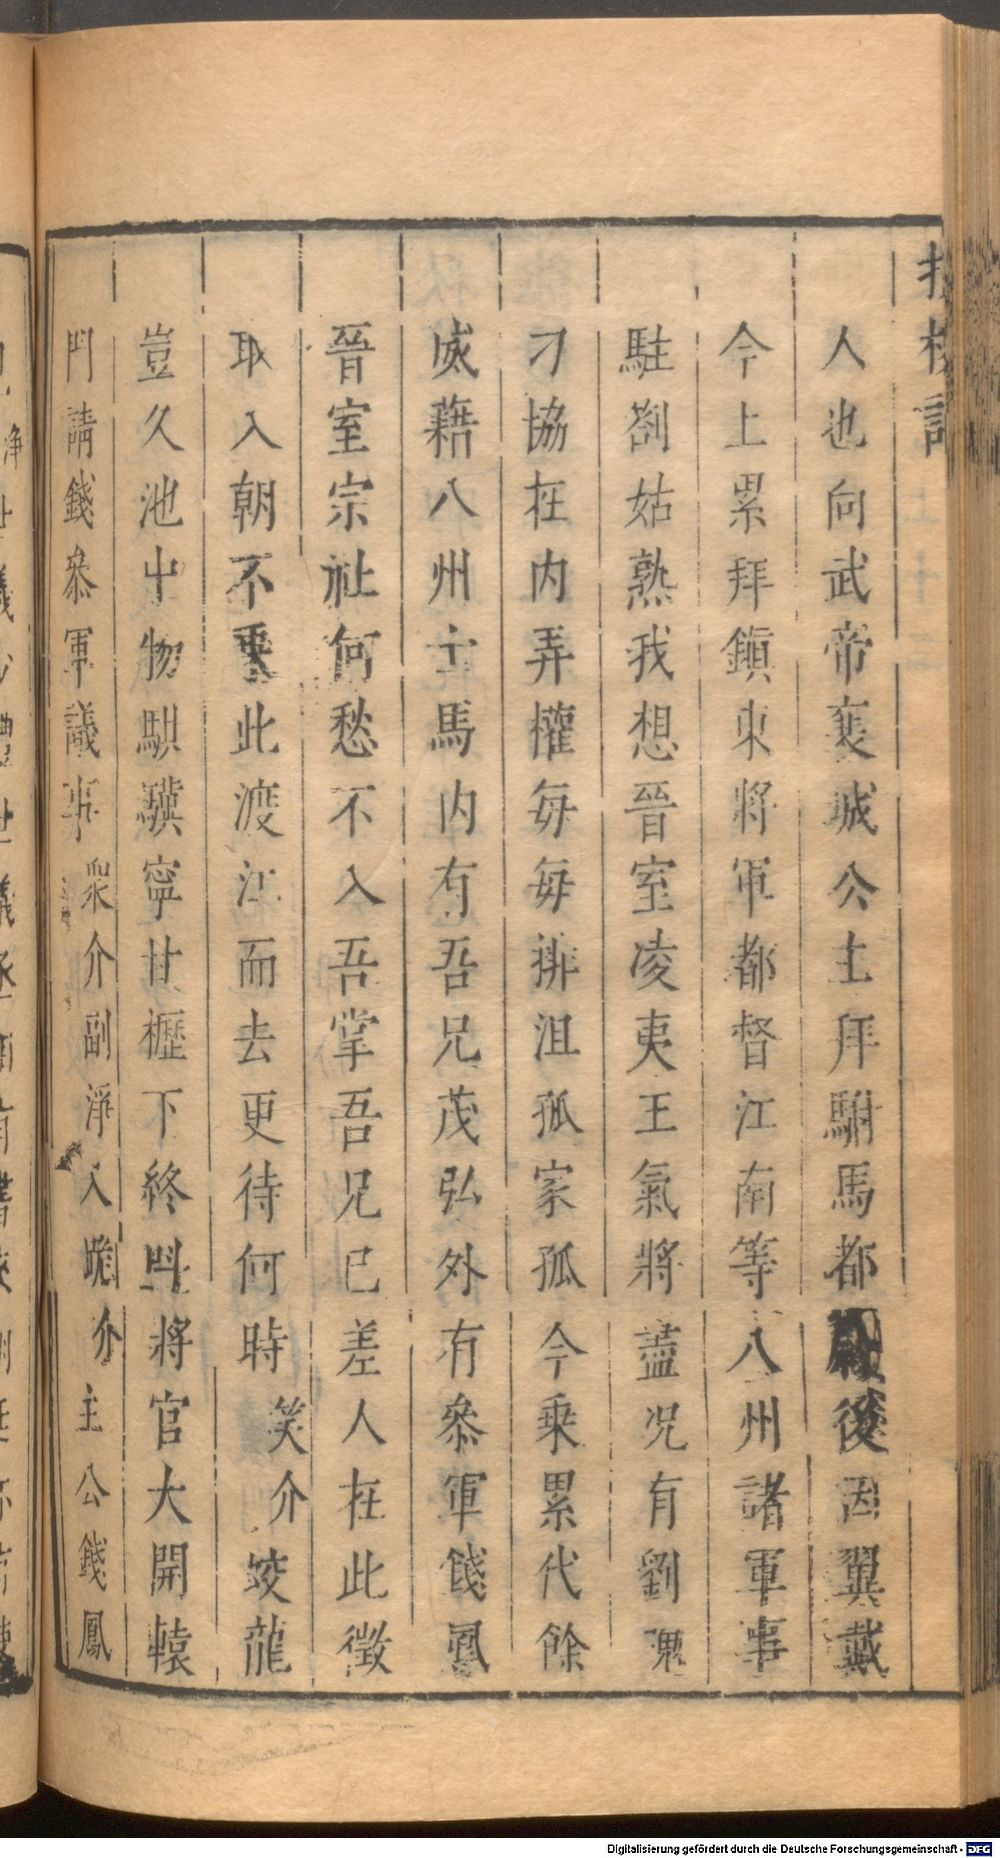 人也向武帝襄城公主拜駙馬都尉後因翼戴
今上累拜鎮東將軍都督江南等八州諸軍事
駐劄姑熟我想晉室凌夷王氣將盡况有劉隗
刁協在内弄權每毎排沮孤家孤今乘累代餘
威藉八州士馬内有吾兄茂弘外有叅軍錢鳳
晉室宗社何愁不入吾掌吾兄已差人在此徵
取入朝不要此渡江而去更待何時笑介蛟龍
豈久池中物騏驥寧甘櫪下終叫將官大開轅
門請錢叅軍議事衆介副淨入跪介主公錢鳳
Digitalisierung gefördert durch die Deutsche Forschungsgemeinschaft - DFG